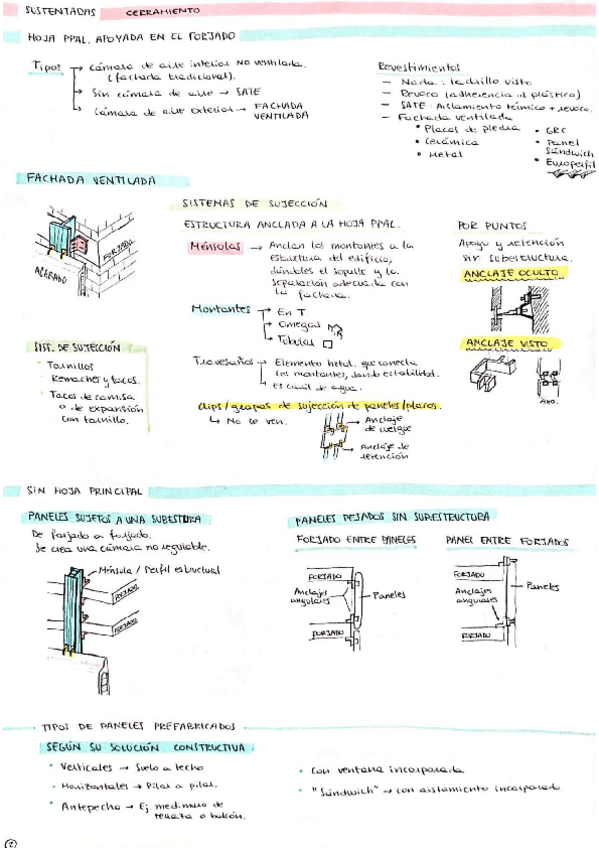 SUSTENTADAS CERRAMIENTO
HOJA PPAL. APOYADA EN EL FORJADO
Tipos → Cámara de aire interior NO ventilada.
(fachada tradicional).
→ Sin cámara de aire → SATE
→ Cámara de aire exterior → FACHADA
VENTILADA
Revestimientos
- Nada: ladrillo visto
- Revoco (adherencia al plástico)
- SATE: Aislamiento térmico + revoco.
- Fachada ventilada
• Placas de piedra
• Cerámica
• Metal
• GRC
• Panel
Sándwich
• Europerfil
FACHADA VENTILADA
FORJADO
ACERADO
SIST. DE SUJECCIÓN
• Tornillos
Remaches y tacos.
• Tacos de camisa
o de expansión
con tornillo.
SISTEMAS DE SUJECCIÓN
ESTRUCTURA ANCLADA A LA HOJA PPAL.
Ménsulas → Anclan los montantes a la
estructura del edificio,
dándoles el soporte y la
separación adecuada con
la fachada.
Montantes → En T
→ Omegas
→ Tubular
Travesaños → Elemento metal. que conecta
los montantes, dando estabilidad.
→ Es canal de agua.
Clips/grapas de sujección de paneles/placas.
↳ No se ven.
→ Anclaje
de cuelgue
→ Anclaje de
retención
POR PUNTOS
Apoyo y retención
sin subestructura.
ANCLAJE OCULTO
ANCLAJE VISTO
SIN HOJA PRINCIPAL
PANELES SUJETOS A UNA SUBESTURA
De forjado a forjado.
Se crea una cámara no registable.
Ménsula / Perfil estructural
FORJADO
FORJADO
PANELES FIJADOS SIN SUBESTRUCTURA
FORJADO ENTRE PANELES
FORJADO
Anclajes
angulares
Paneles
FORJADO
PANEL ENTRE FORJADOS
FORJADO
Anclajes
angulares
Paneles
FORJADO
TIPOS DE PANELES PREFABRICADOS
SEGÚN SU SOLUCIÓN CONSTRUCTIVA
• Verticales → Suelo a techo
• Horizontales → Pilar a pilar.
• Antepecho → Ej
• Con ventana incorporada
• "Sándwich" → con aislamiento incorporado
2